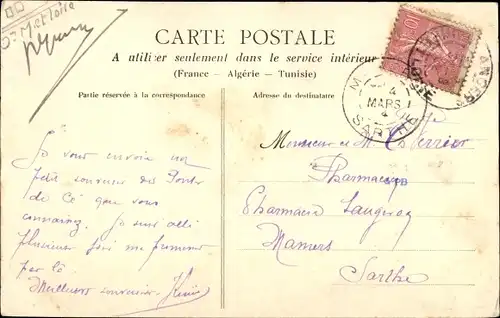 CARTE POSTALE
A utiliser seulement dans le service intérieur
(France - Algérie - Tunisie)
Partie réservée à la correspondance
Adresse du destinataire
MARS
4
SARTHE
ANGERS
Je vous envoie un
petit souvenir des Ponts
de Cé que vous
connaissez. Je suis allé
plusieurs fois me promener
par là.
Meilleurs souvenirs
Monsieur et M
Pharmacie
Mamers
Sarthe